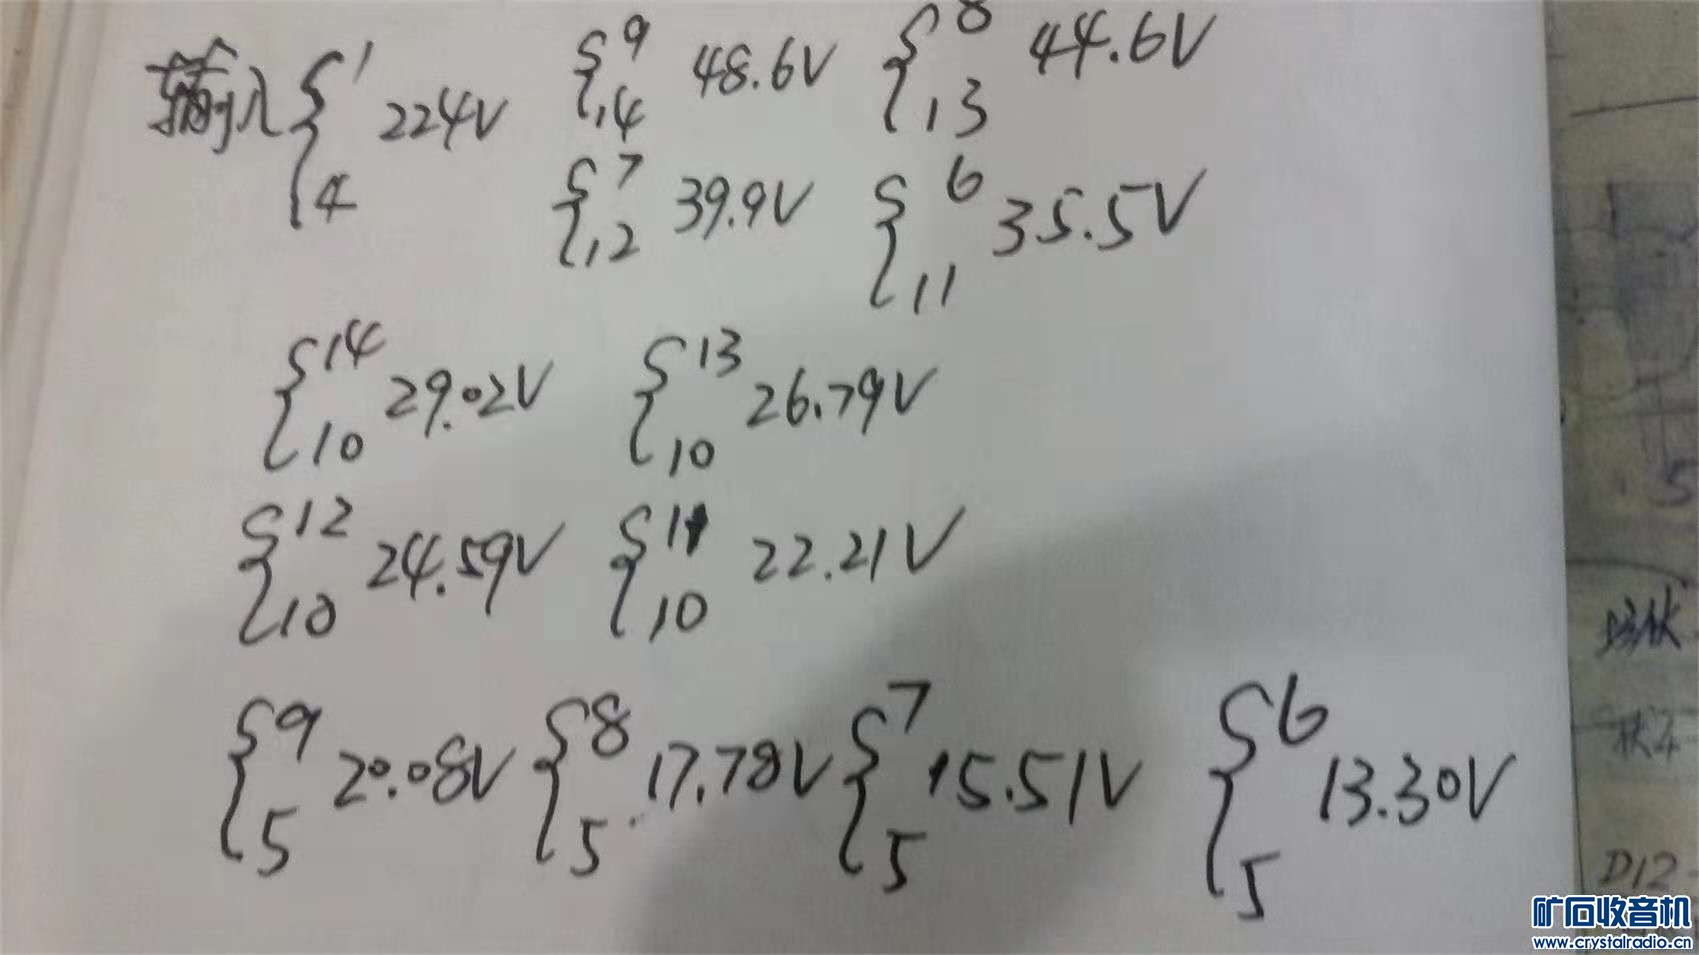 输入 { 1 4 224V { 9 14 48.6V { 8 13 44.6V
{ 7 12 39.9V { 6 11 35.5V
{ 14 10 29.02V { 13 10 26.79V
{ 12 10 24.59V { 11 10 22.21V
{ 9 5 20.08V { 8 5 17.78V { 7 5 15.51V { 6 5 13.30V
5
D12
矿石收音机
www.crystalradio.cn